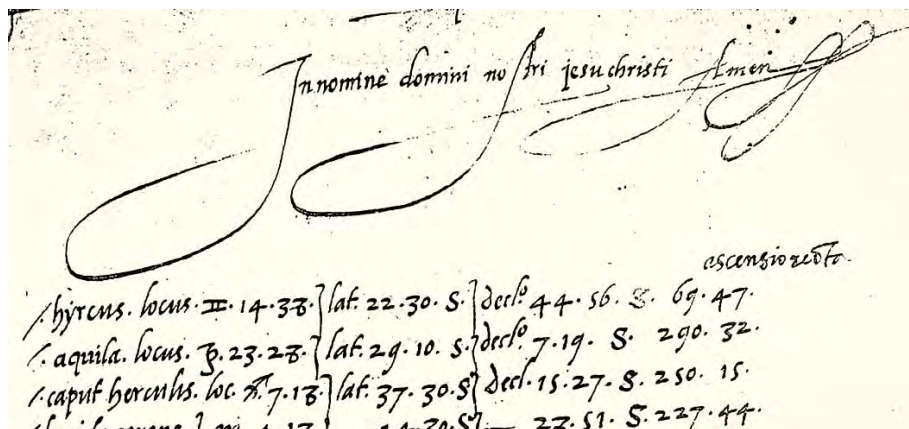 In nomine domini nostri jesu christi Amen
ascensio recta
hyrcus. locus. ♊. 14. 38. lat. 22. 30. S. decl⁰ 44. 56. S. 69. 47.
aquila. locus. ♑. 23. 28. lat. 29. 10. S. decl⁰ 7. 19. S. 290. 32.
caput herculis. loc. ♐. 7. 18. lat. 37. 30. S decl. 15. 27. S. 250. 15.
S. 227. 44.